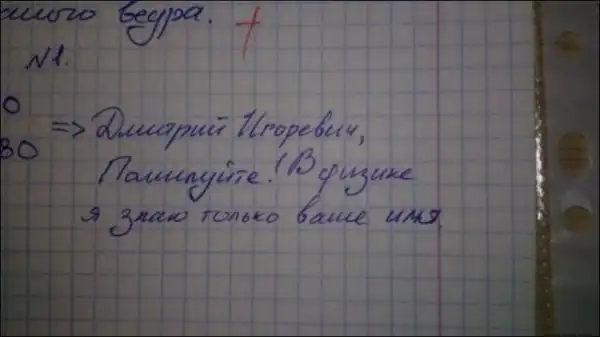 ведра.
N1.
0
=> Дмитрий Игоревич,
Помилуйте! В физике
я знаю только ваше имя.